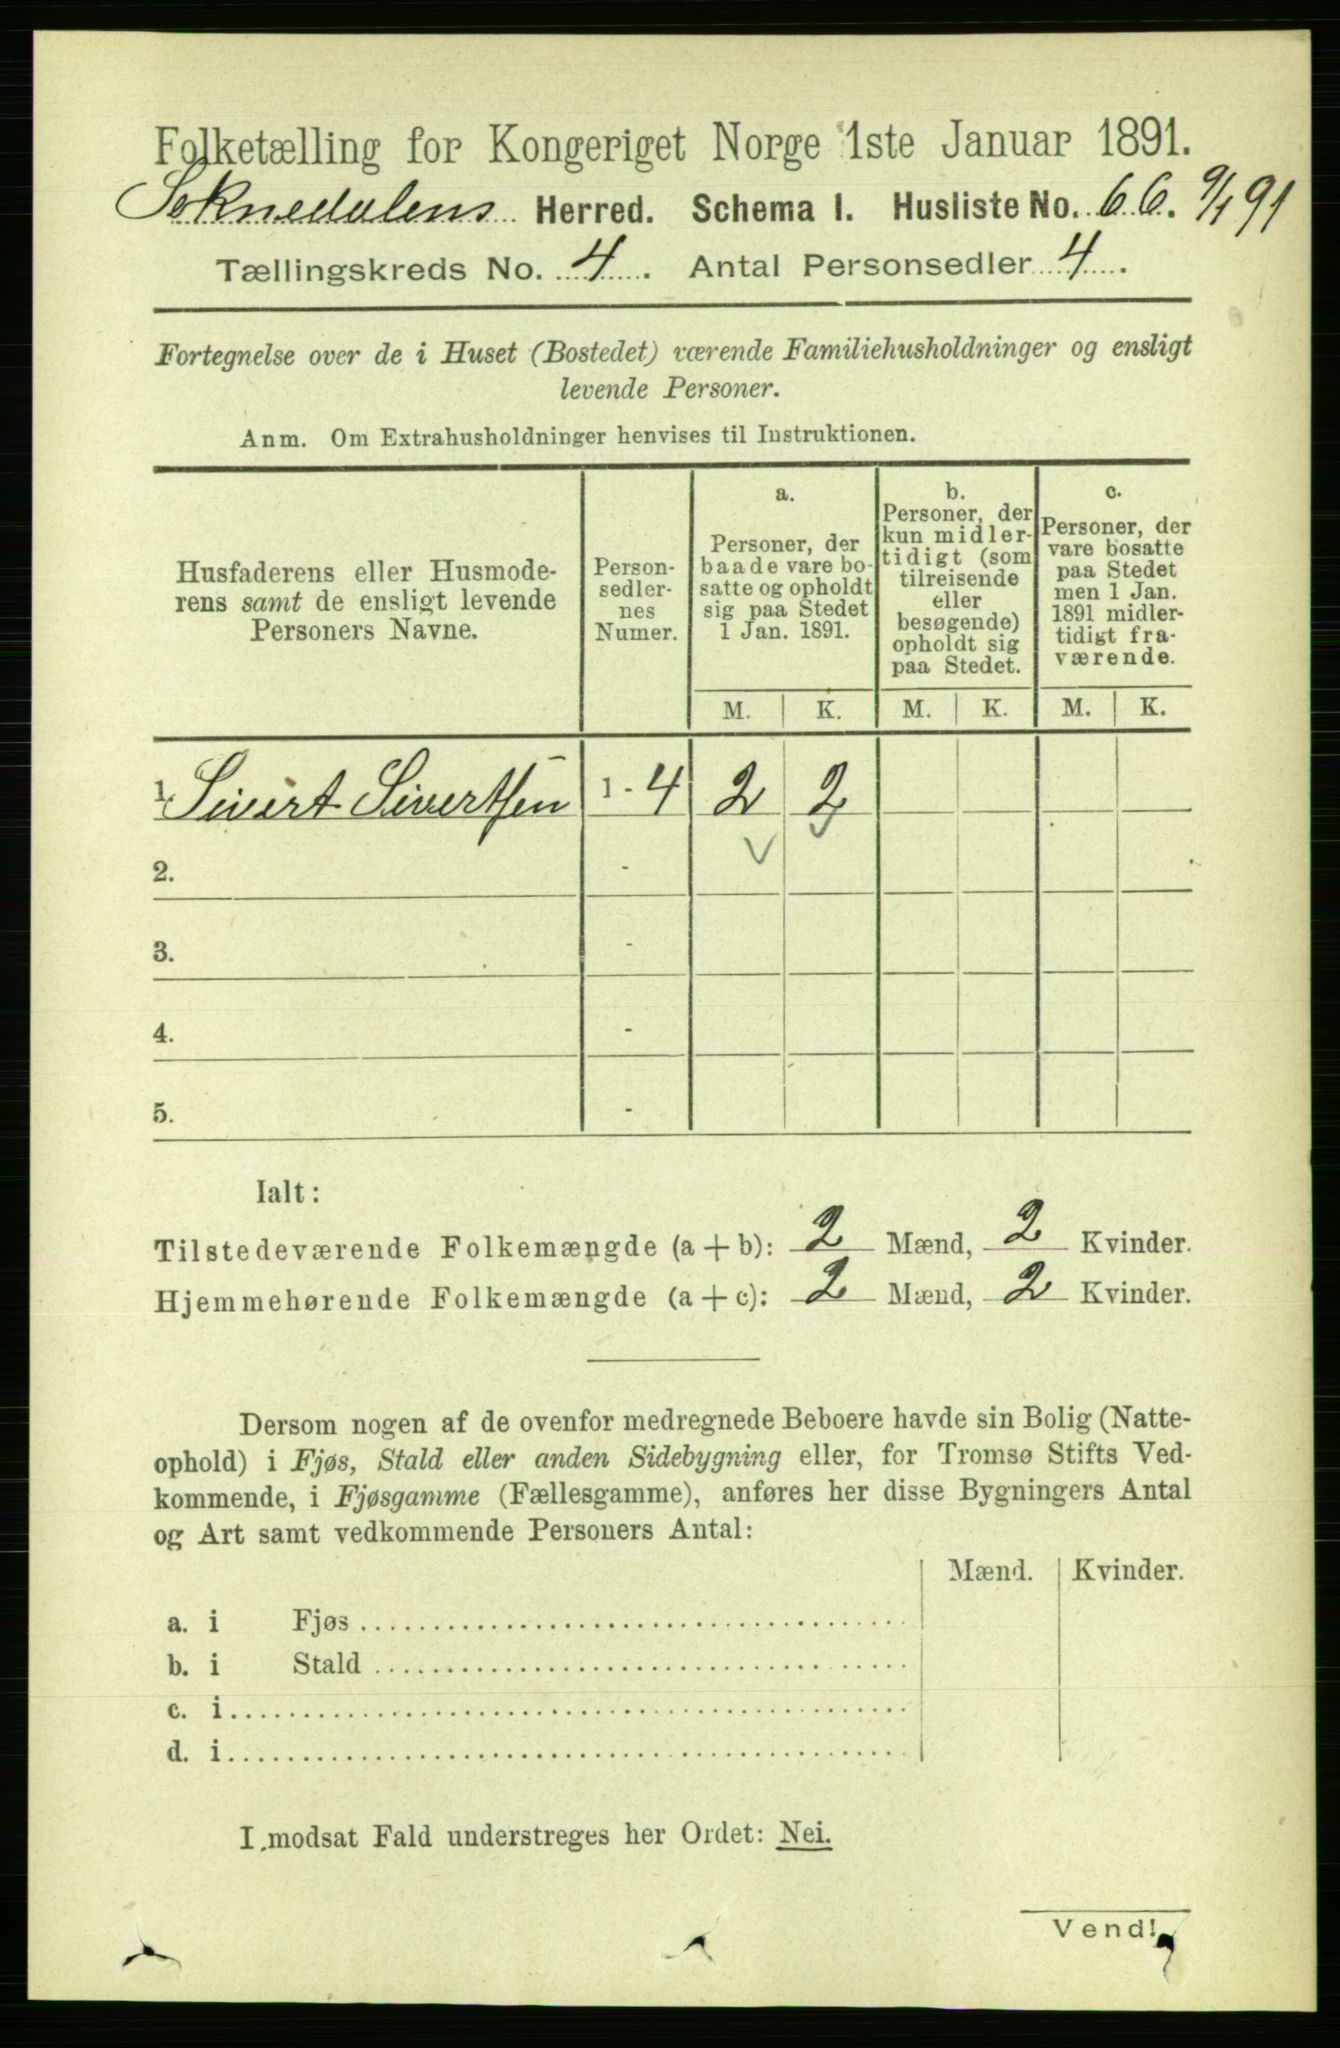 Folketælling for Kongeriget Norge 1ste Januar 1891.
Soknedalens Herred. Schema I. Husliste No. 66. 9/1 91
Tællingskreds No. 4. Antal Personsedler 4.
Fortegnelse over de i Huset (Bostedet) værende Familiehusholdninger og ensligt
levende Personer.
Anm. Om Extrahusholdninger henvises til Instruktionen.
Husfaderens eller Husmode-
rens samt de ensligt levende
Personers Navne.
Person-
sedler-
nes
Numer.
a.
Personer, der
baade vare bo-
satte og opholdt
sig paa Stedet
1 Jan. 1891.
b.
Personer, der
kun midler-
tidigt (som
tilreisende
eller
besøgende)
opholdt sig
paa Stedet.
c.
Personer, der
vare bosatte
paa Stedet
men 1 Jan.
1891 midler-
tidigt fra-
værende.
M. K. M. K. M. K.
1. Sivert Sivertsen 1 - 4 2 2
2. -
3. -
4. -
5. -
Ialt:
Tilstedeværende Folkemængde (a + b): 2 Mænd, 2 Kvinder.
Hjemmehørende Folkemængde (a + c): 2 Mænd, 2 Kvinder.
Dersom nogen af de ovenfor medregnede Beboere havde sin Bolig (Natte-
ophold) i Fjøs, Stald eller anden Sidebygning eller, for Tromsø Stifts Ved-
kommende, i Fjøsgamme (Fællesgamme), anføres her disse Bygningers Antal
og Art samt vedkommende Personers Antal:
Mænd. Kvinder.
a. i Fjøs
b. i Stald
c. i
d. i
I modsat Fald understreges her Ordet: Nei.
Vend!